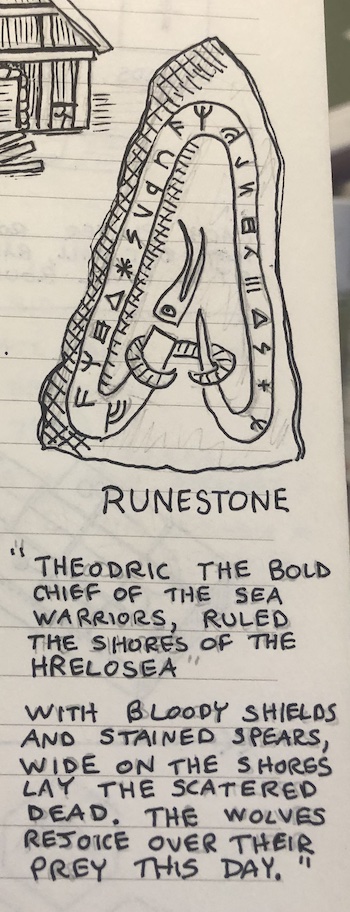 RUNESTONE
"THEODRIC THE BOLD
CHIEF OF THE SEA
WARRIORS, RULED
THE SHORES OF THE
HRELOSEA"
WITH BLOODY SHIELDS
AND STAINED SPEARS,
WIDE ON THE SHORES
LAY THE SCATERED
DEAD. THE WOLVES
REJOICE OVER THEIR
PREY THIS DAY."